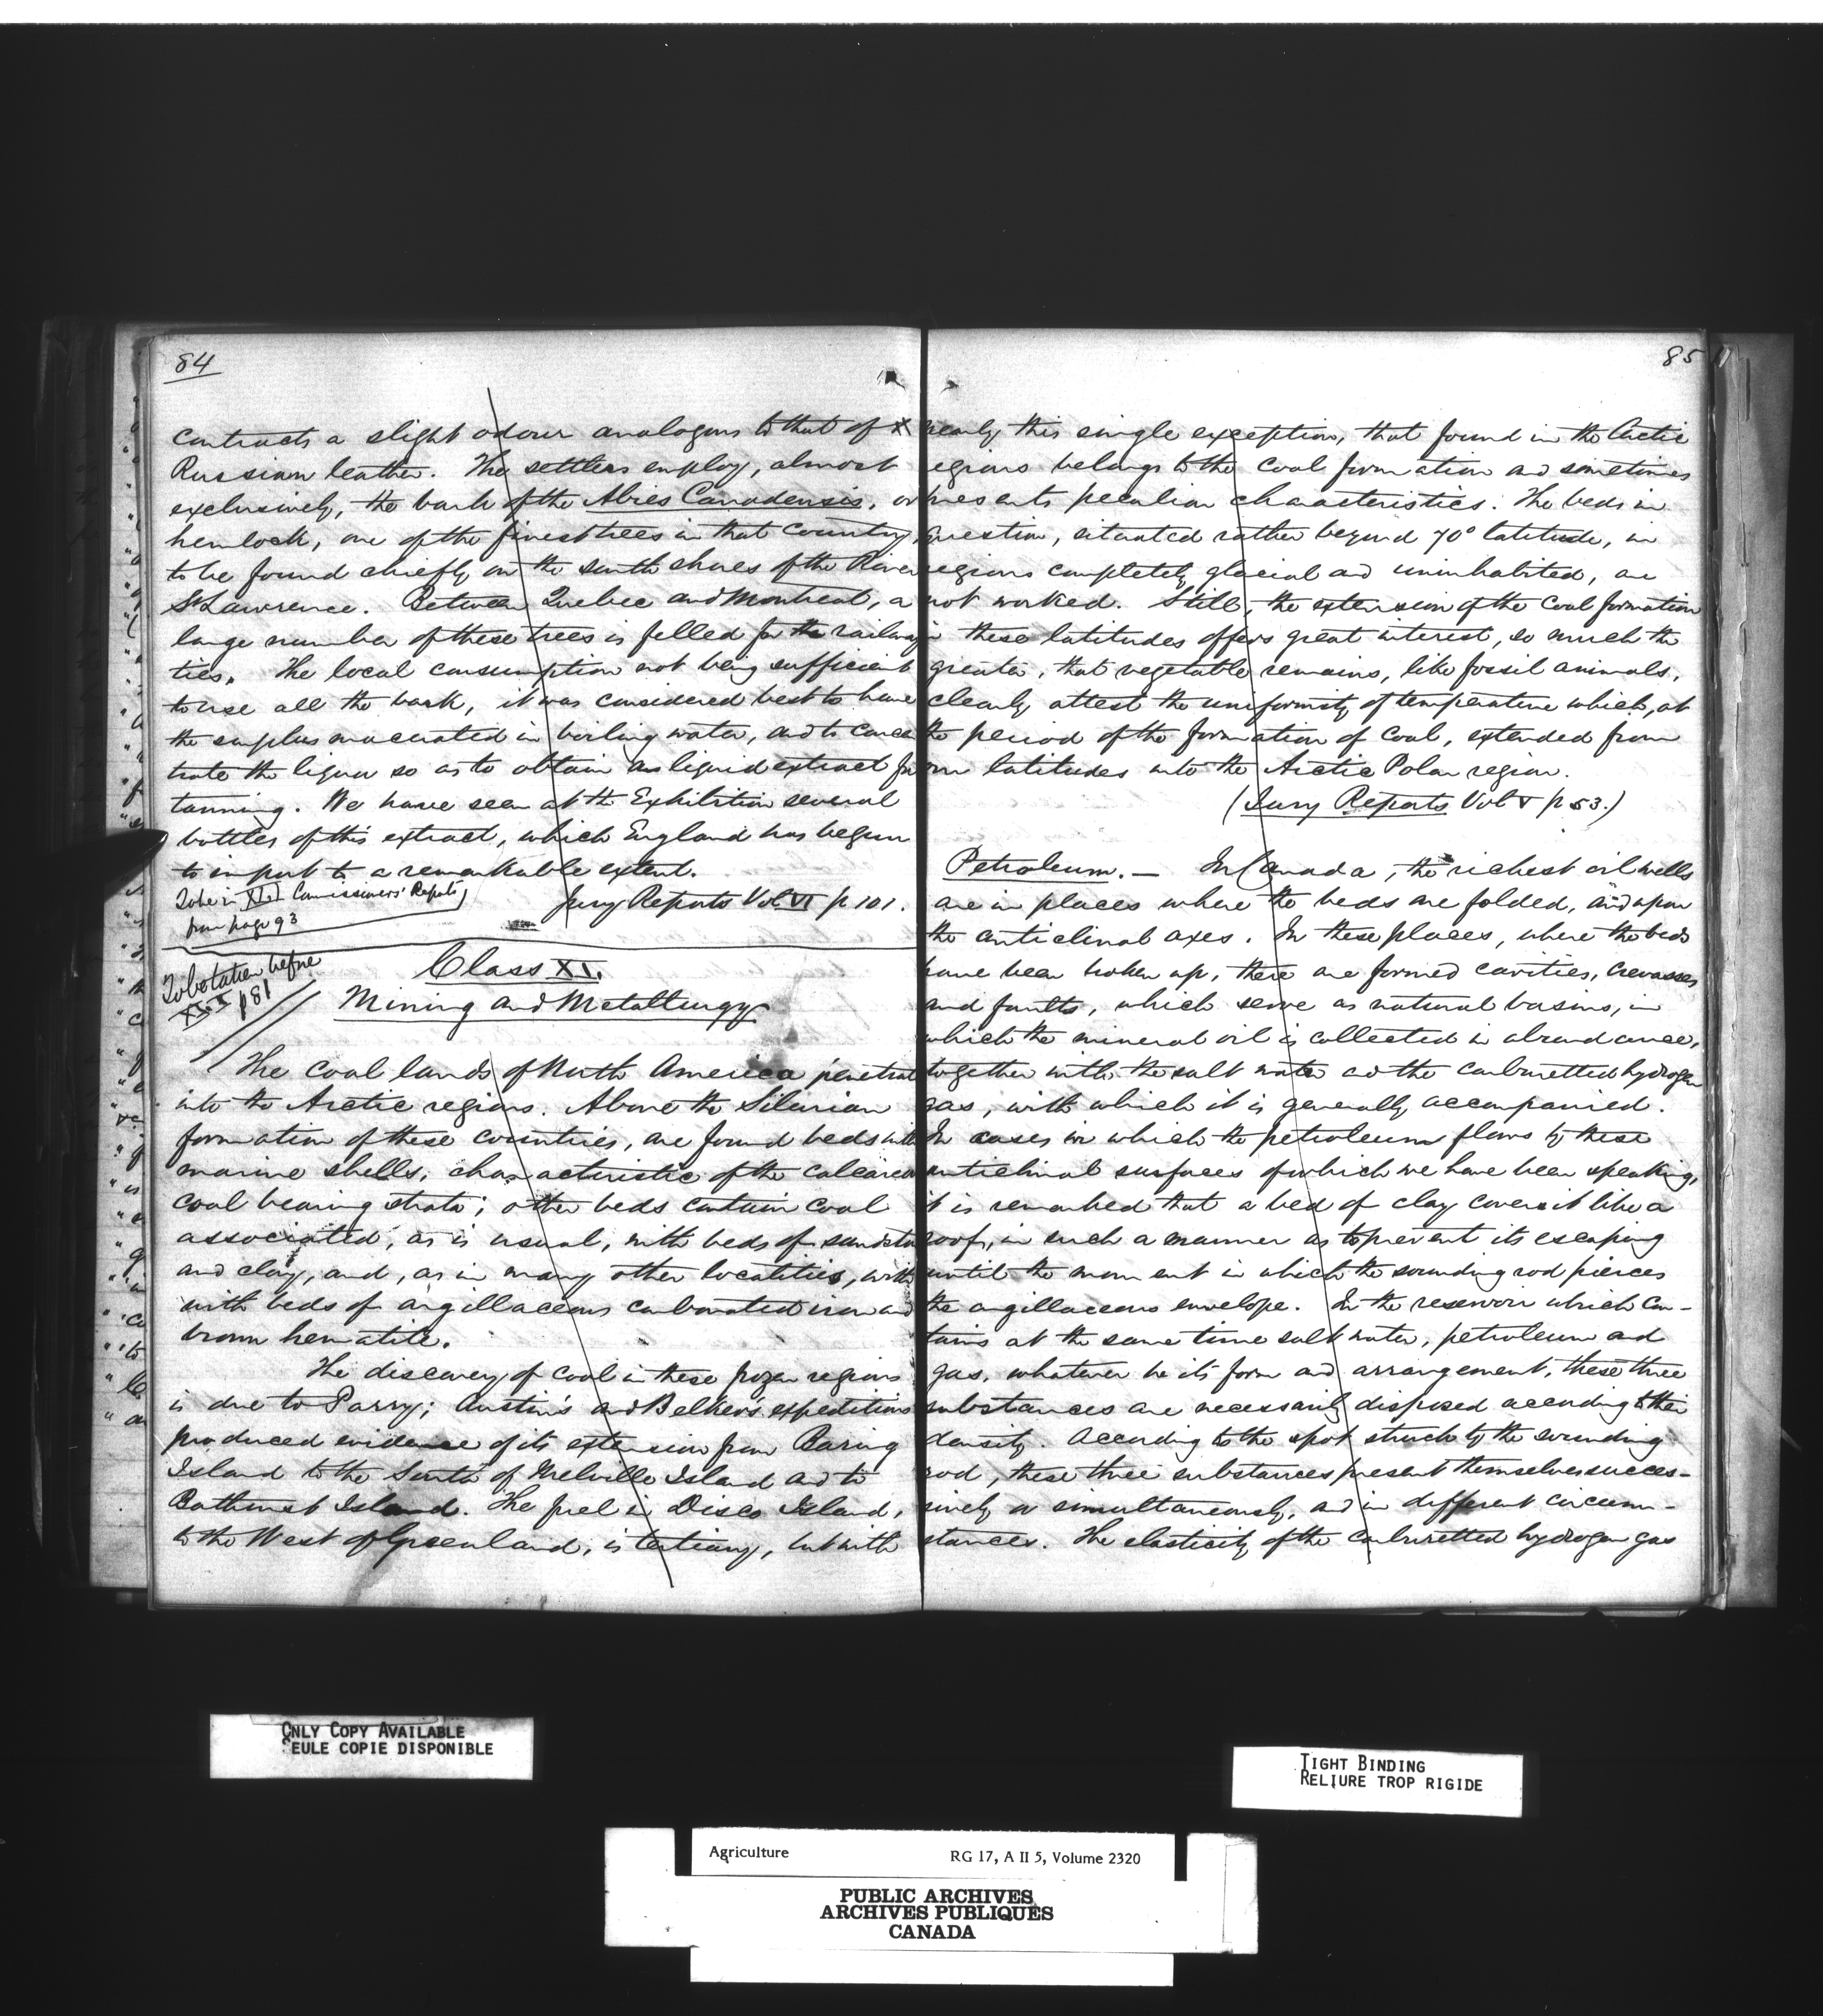 84
contracts a slight odour analogous to that of X
Russian leather. The settlers employ, almost
exclusively, the bark of the Abies Canadensis, or
hemlock, one of the finest trees in that country,
to be found chiefly on the south shores of the River
St Lawrence. Between Quebec and Montreal, a
large number of these trees is felled for the railway
ties. The local consumption not being sufficient
to use all the bark, it was considered best to have
the surplus macerated in boiling water, and to concen
trate the liquor so as to obtain a liquid extract for
tanning. We have seen at the Exhibition several
bottles of this extract, which England has begun
to import to a remarkable extent.
Jury Reports Vol VI p 101.
To be in Commissioners' Reports
from page 93
To be taken before
p 81
Class XI.
Mining and Metallurgy
The coal lands of North America penetrate
into the Arctic regions. Above the Silurian
formation of these countries, are found beds with
marine shells, characteristic of the calcareous
coal bearing strata; other beds contain coal
associated, as is usual, with beds of sandstone
and clay, and, as in many other localities, with
with beds of argillaceous carbonated iron and
brown hematite.
The discovery of coal in these frozen regions
is due to Parry; Austin's and Belker's expeditions
produced evidence of its extension from Baring
Island to the South of Melville Island and to
Bathurst Island. The fuel in Disco Island,
to the West of Greenland, is tertiary, but with
85
nearly this single exception, that found in the Arctic
egions belongs to the coal formation and sometimes
presents peculiar characteristics. The beds in
question, situated rather beyond 70° latitude, in
regions completely glacial and uninhabited, are
not worked. Still, the extension of the coal formation
in these latitudes offers great interest, so much the
greater, that vegetable remains, like fossil animals,
clearly attest the uniformity of temperature which, at
the period of the formation of coal, extended from
our latitudes into the Arctic Polar region.
(Jury Reports Vol V p 53.)
Petroleum. — In Canada, the richest oil wells
are in places where the beds are folded, and upon
the anticlinal axes. In these places, where the beds
have been broken up, there are formed cavities, crevasses
and faults, which serve as natural basins, in
which the mineral oil is collected in abundance,
together with the salt water and the carburetted hydrogen
gas, with which it is generally accompanied.
In cases in which the petroleum flows by these
anticlinal surfaces of which we have been speaking,
it is remarked that a bed of clay covers it like a
roof, in such a manner as to prevent its escaping
until the moment in which the sounding rod pierces
the argillaceous envelope. In the reservoir which con-
tains at the same time salt water, petroleum and
gas, whatever be its form and arrangement, these three
substances are necessarily disposed according to their
density. According to the spot struck by the sounding
rod, these three substances present themselves succes-
sively or simultaneously, and in different circum-
stances. The elasticity of the carburetted hydrogen gas
ONLY COPY AVAILABLE
SEULE COPIE DISPONIBLE
TIGHT BINDING
RELIURE TROP RIGIDE
Agriculture RG 17, A II 5, Volume 2320
PUBLIC ARCHIVES
ARCHIVES PUBLIQUES
CANADA